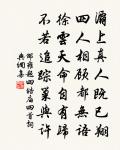 灞上真人既已翔
四人相顧都無語
徐云天命自有歸
不若追蹤巢與許
邵雍題四皓廟四首詞
典網